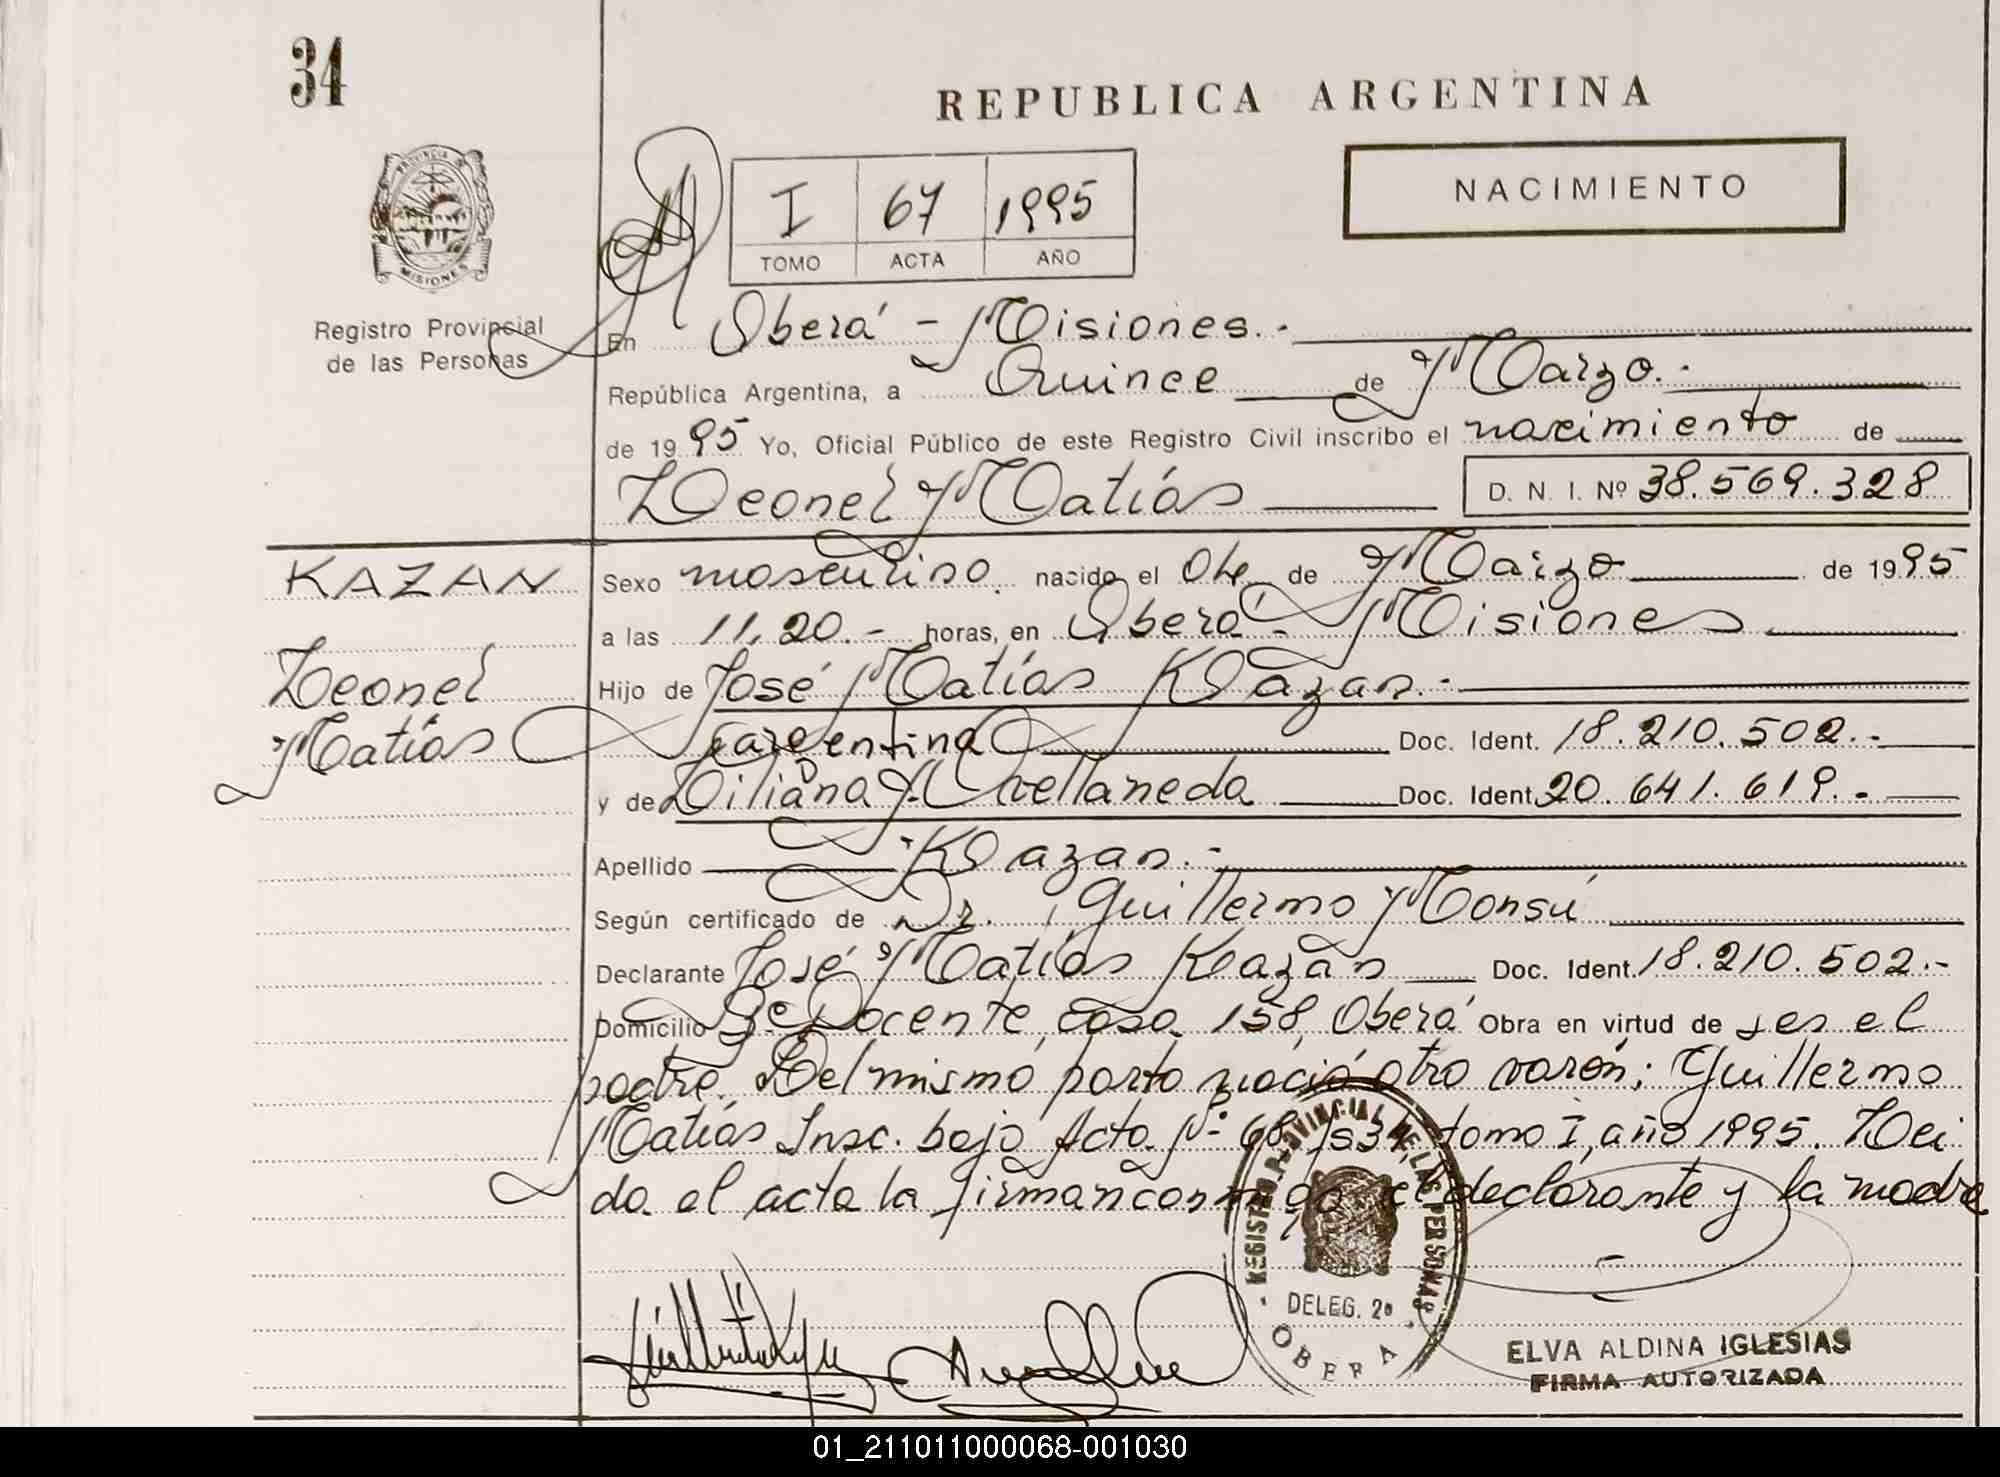 34
REPUBLICA ARGENTINA
NACIMIENTO
PROVINCIA DE
MISIONES
I 67 1995
TOMO ACTA AÑO
Registro Provincial
de las Personas
En Oberá - Misiones.-
República Argentina, a Quince de Marzo.-
de 1995 Yo, Oficial Público de este Registro Civil inscribo el nacimiento de
Leonel Matías D. N. I. Nº 38.569.328
KAZAN
Leonel
Matías
Sexo masculino nacido el de Marzo de 1995
a las 11,20.- horas, en Oberá - Misiones
Hijo de José Matías Kazan.-
argentina Doc. Ident. 18.210.502.-
y de Liliana Avellaneda Doc. Ident. 20.641.619.-
Apellido Kazan.-
Según certificado de Dr. Guillermo Monsú
Declarante José Matías Kazan Doc. Ident. 18.210.502.-
Domicilio Bº Docente, casa 158, Oberá Obra en virtud de ser el
padre. Del mismo parto nació otro varón; Guillermo
Matías Insc. bajo Acta Nº 68, fs 34, tomo I, año 1995. Lei
da el acta la firman conmigo el declarante y la madre
REGISTRO PROVINCIAL DE LAS PERSONAS
DELEG. 2ª
OBERA
ELVA ALDINA IGLESIAS
FIRMA AUTORIZADA
01_211011000068-001030